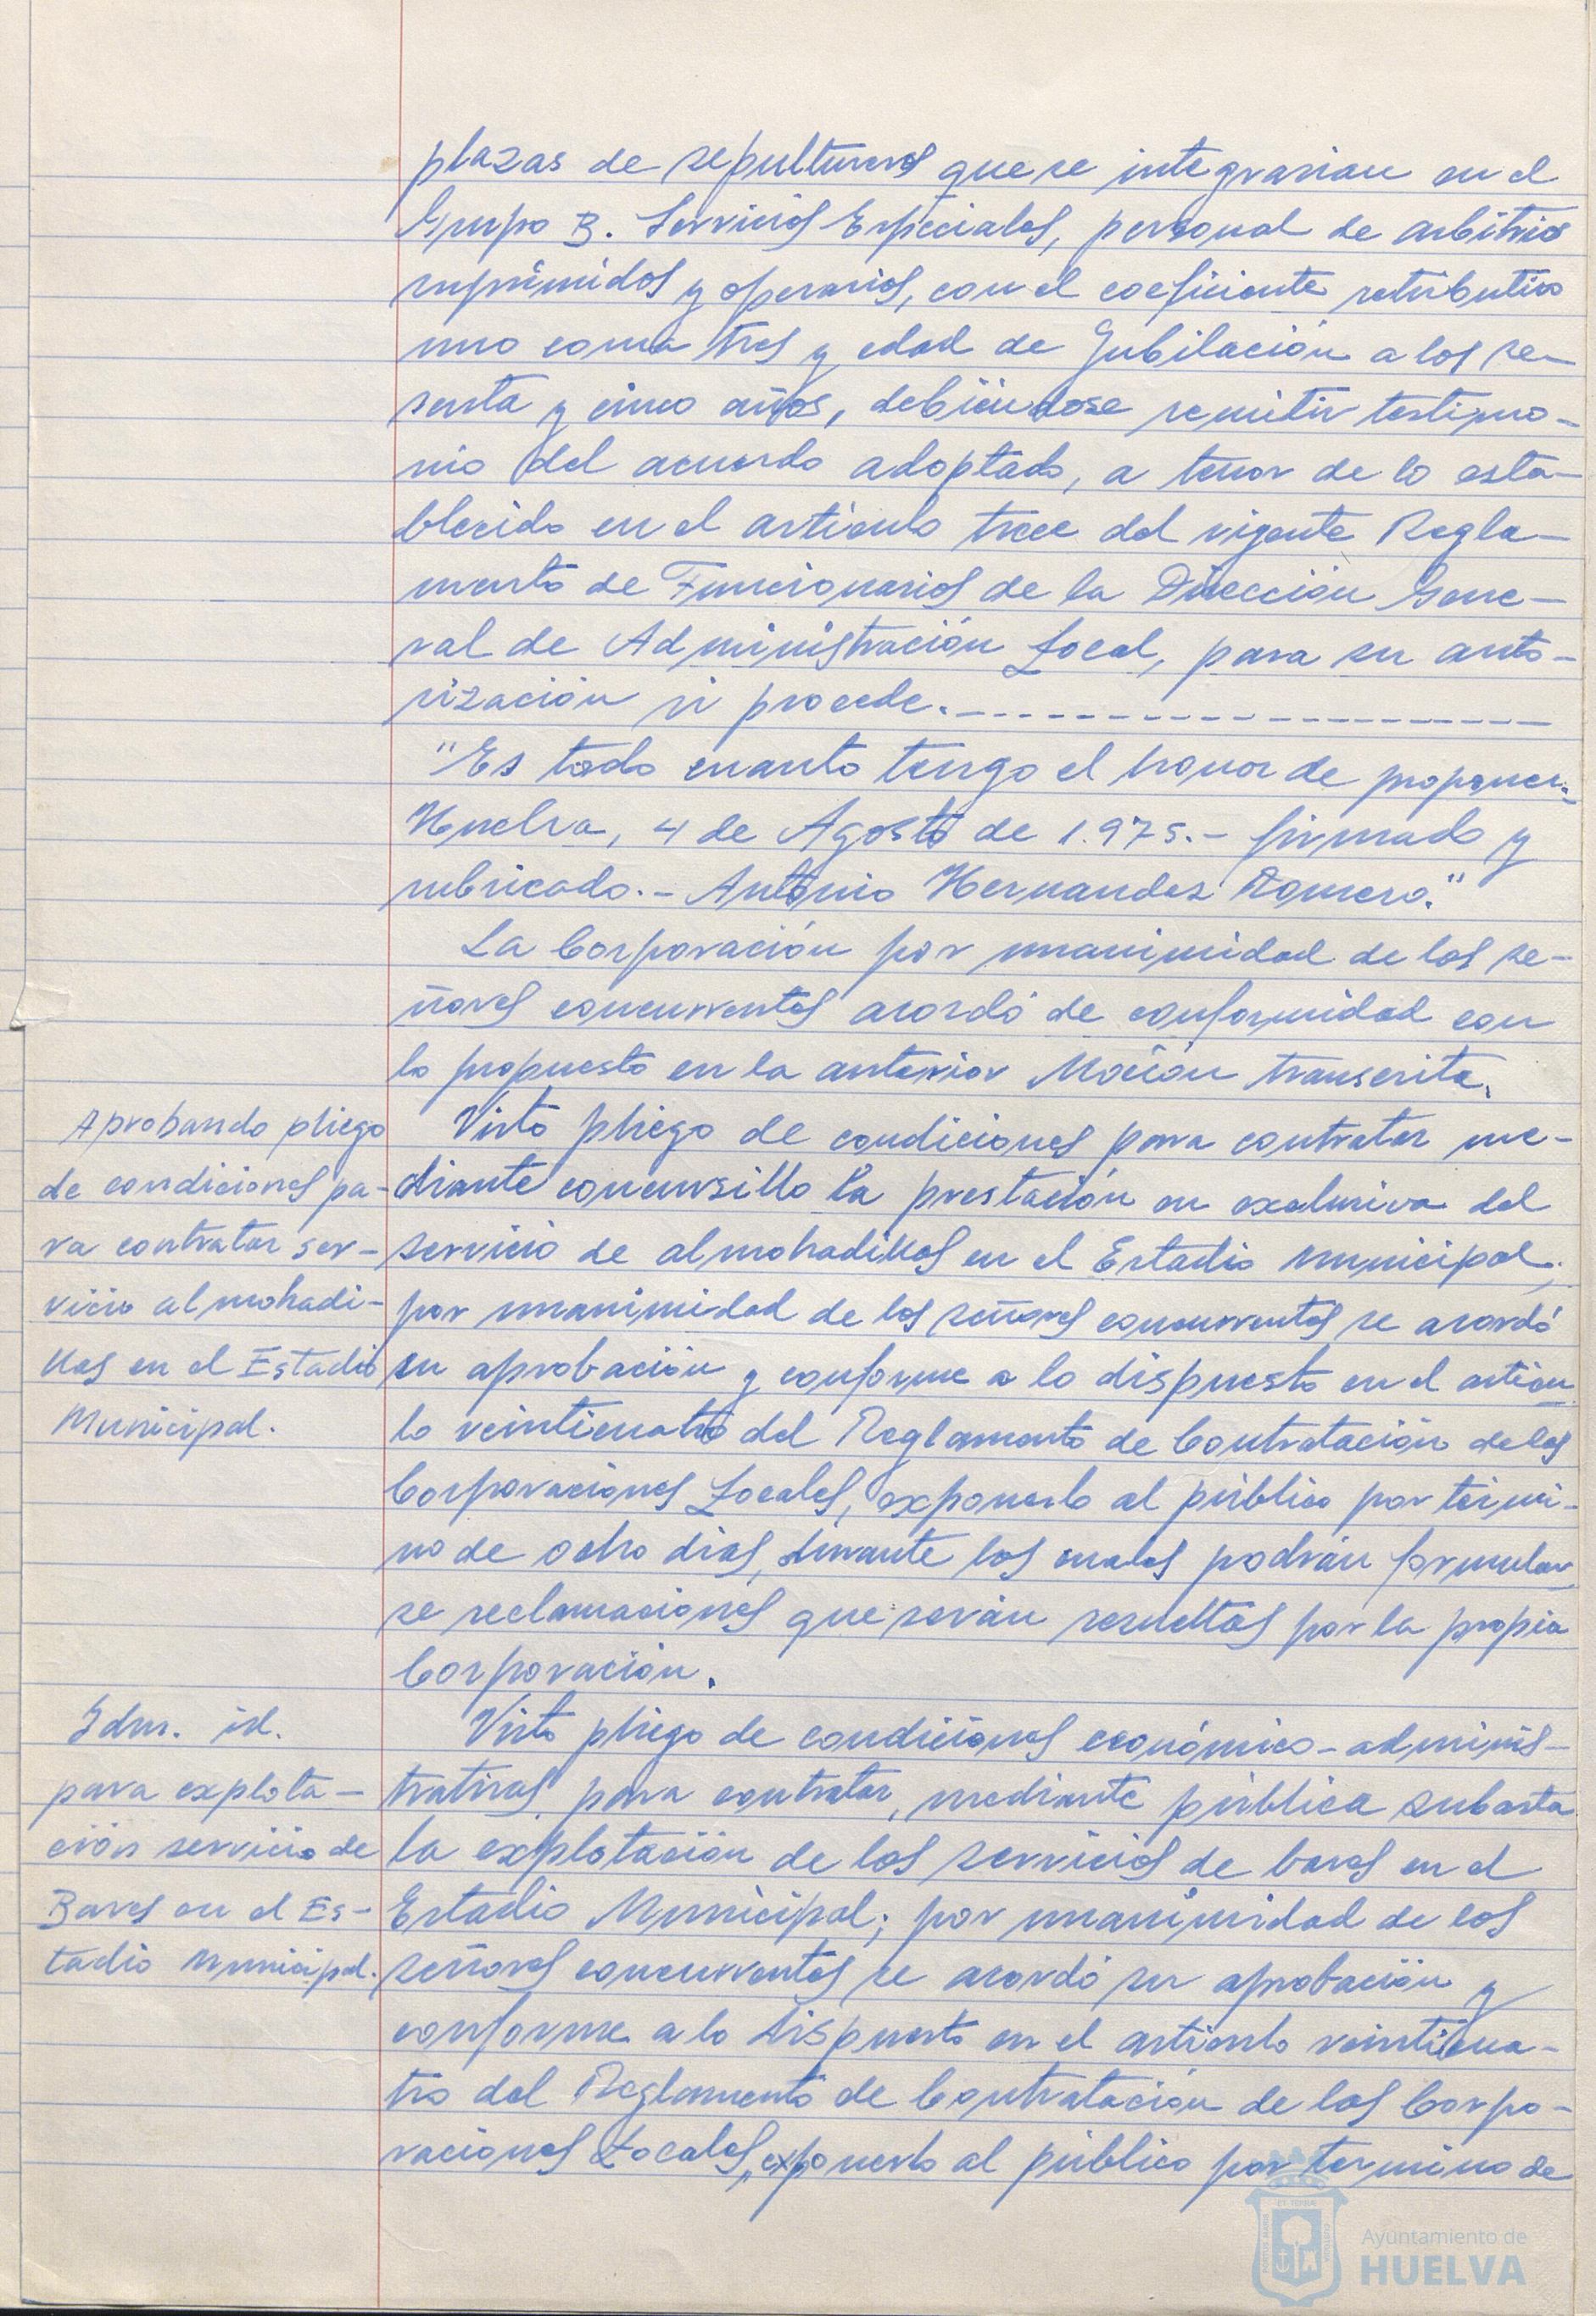 plazas de sepultureros que se integrarian en el
Grupo B. Servicios Especiales, personal de arbitrios
suprimidos y operarios, con el coeficiente retributivo
uno coma tres y edad de Jubilación a los se-
senta y cinco años, debiéndose remitir testimo-
nio del acuerdo adoptado, a tenor de lo esta-
blecido en el articulo trece del vigente Regla-
mento de Funcionarios de la Dirección Gene-
ral de Administración Local, para su auto-
rización si procede.-
"Es todo cuanto tengo el honor de proponer.-
Huelva, 4 de Agosto de 1.975.- firmado y
rubricado.- Antonio Hernandez Romero."
La Corporación por unanimidad de los se-
ñores concurrentes acordó de conformidad con
lo propuesto en la anterior Moción transcrita.
Aprobando pliego
de condiciones pa-
ra contratar ser-
vicio almohadi-
llas en el Estadio
Municipal.
Visto pliego de condiciones para contratar me-
diante concursillo la prestación en exclusiva del
servicio de almohadillas en el Estadio Municipal,
por unanimidad de los señores concurrentes se acordó
su aprobación y conforme a lo dispuesto en el articu
lo veinticuatro del Reglamento de Contratación de las
Corporaciones Locales, exponerlo al público por térmi-
no de ocho dias, durante los cuales podrán formular
se reclamaciones que serán resueltas por la propia
Corporación.
Idm. id.
para explota-
ción servicio de
Bares en el Es-
tadio Municipal.
Visto pliego de condiciones económico-adminis-
trativas para contratar, mediante pública subasta
la explotación de los servicios de bares en el
Estadio Municipal; por unanimidad de los
señores concurrentes se acordó su aprobación y
conforme a lo dispuesto en el articulo veinticua-
tro del Reglamento de Contratación de las Corpo-
raciones Locales, exponerlo al público por termino de
Ayuntamiento de
HUELVA